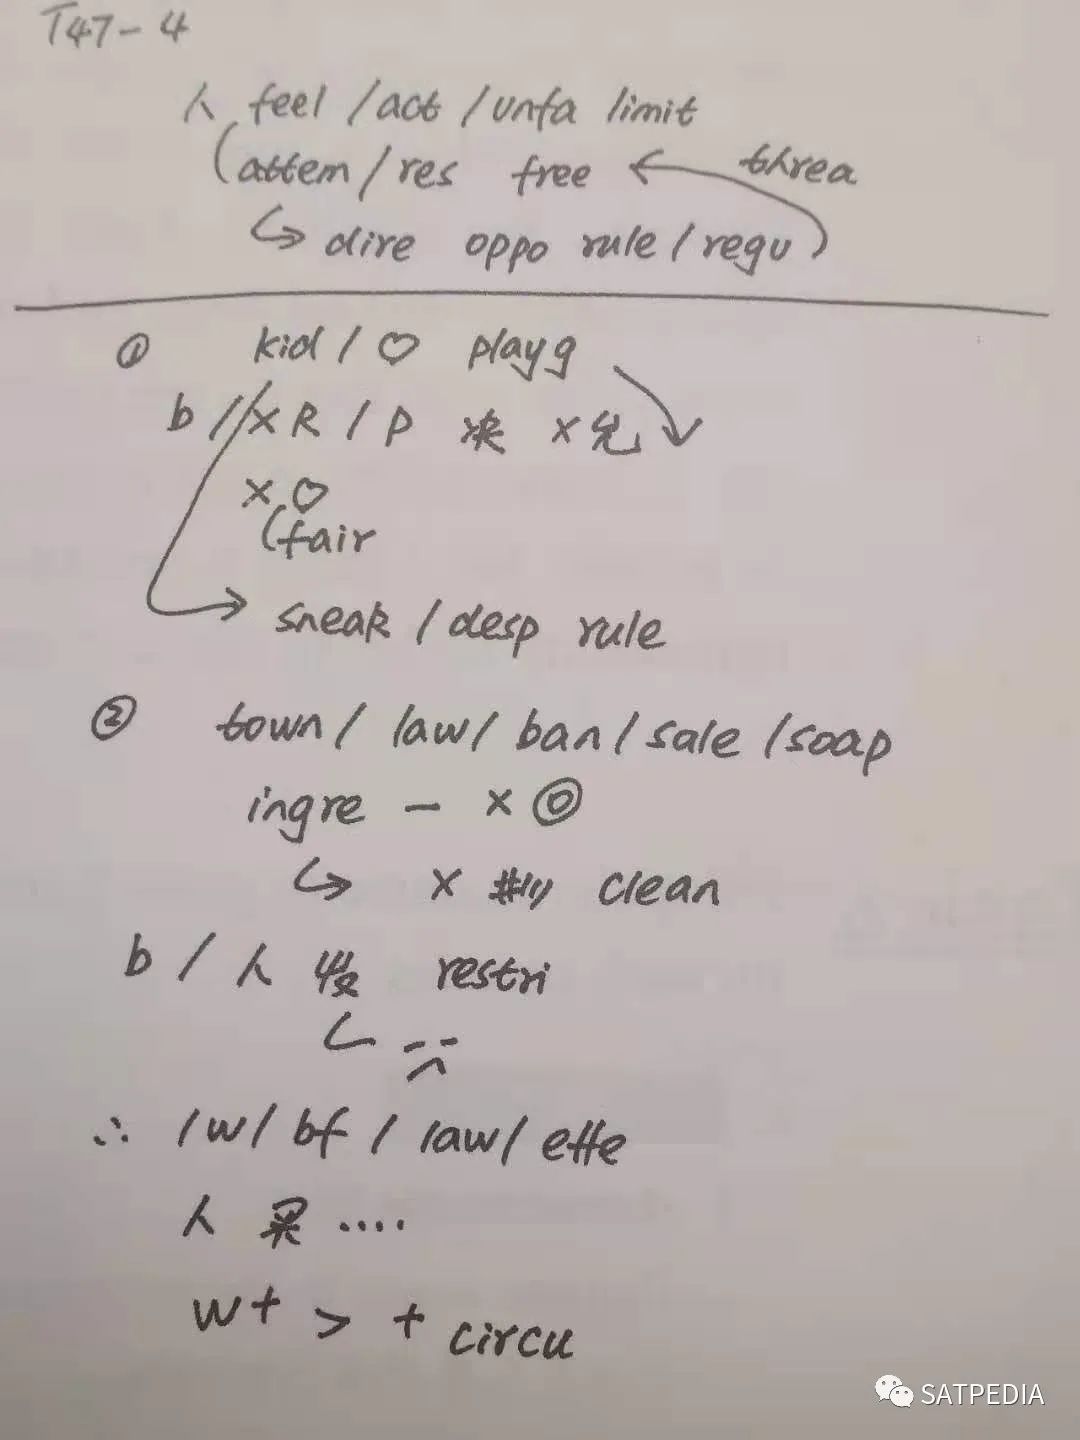 T47-4
人 feel /act /unfa limit
(attem/res free ← threa
↳ dire oppo rule/regu)
① kid/♡ playg
b//×R/P 来 ×
×♡
(fair
sneak/desp rule
② town/ law/ ban/sale /soap
ingre - ×◎
↳ × clean
b/人 restri
∴ /w/ bf / law/ effe
人 买 ....
w+ > + circu
SATPEDIA